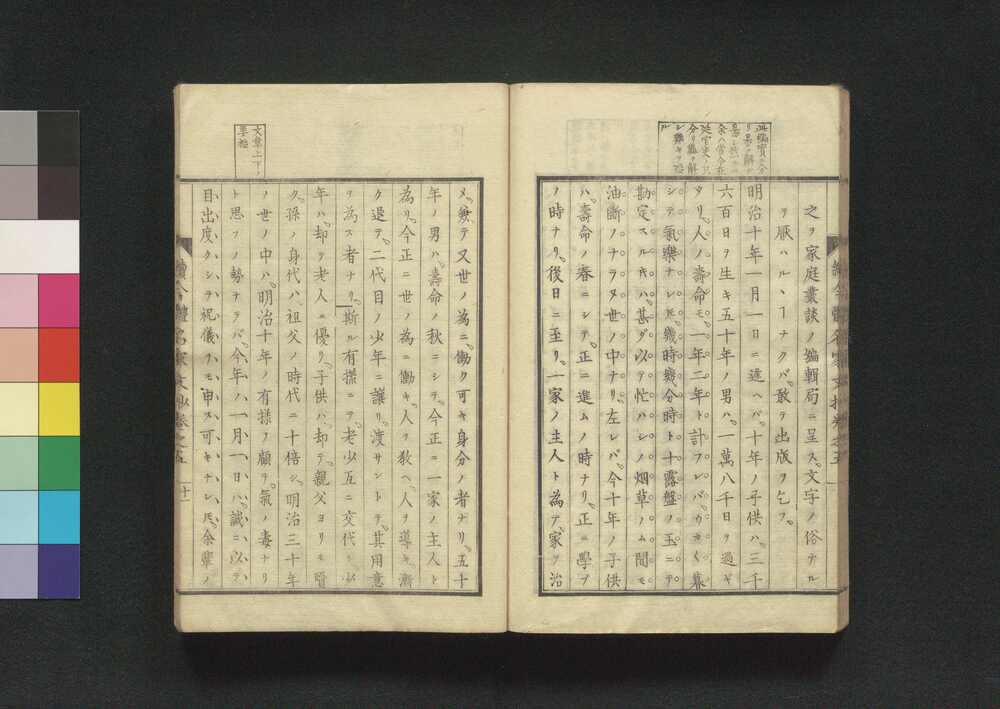 之ヲ家庭叢談ノ編輯局ニ呈ス。文字ノ俗ナル
ヲ厭ハル、ヿナクバ。敢テ出版ヲ乞フ。
明治十年一月一日ニ逢ヘバ。十年ノ子供ハ。三千
六百日ヲ生キ五十年ノ男ハ。一萬八千日ヲ過ギ
タリ。人ノ壽命モ。一年二年ト計フレバ。ウカく暮
シテ。氣樂ナレ𪜈。幾時幾分時ト十露盤ノ玉ニテ
勘定スルキハ。甚ダ以テ忙ハシ。ノ烟草ノム間モ
油斷ノナラヌ世ノ中ナリ。左レバ。今十年ノ子供
ハ。壽命ノ春ニシテ。正ニ進ムノ時ナリ。正ニ學ブ
ノ時ナリ。後日ニ至リ。一家ノ主人ト為テ。家ヲ治
メ。兼テ又世ノ為ニ。働ク可キ身分ノ者ナリ。五十
年ノ男ハ。壽命ノ秋ニシテ。今正ニ一家ノ主人ト
為リ。今正ニ世ノ為ニ働キ。人ヲ敎ヘ。人ヲ導キ。漸
ク退テ。二代目ノ少年ニ讓リ。渡サントテ。其用意
ヲ為ス者ナリ。斯ル有樣ニテ。老少互ニ交代シ。少
年ハ。却テ老人ニ優リ。子供ハ。却テ。親父ヨリモ
ク。孫ノ身代ハ。祖父ノ時代ニ十倍シ。明治三十年
ノ世ノ中ハ。明治十年ノ有樣ヲ顧テ。氣ノ毒ナリ
ト思フノ勢ナラバ。今年ノ一月一日ハ。誠ニ以テ。
目出度クシテ。祝儀ヲモ申ス可キナレ𪜈。余輩ノ
文章上下ノ
續今體名家文抄卷之五
十一